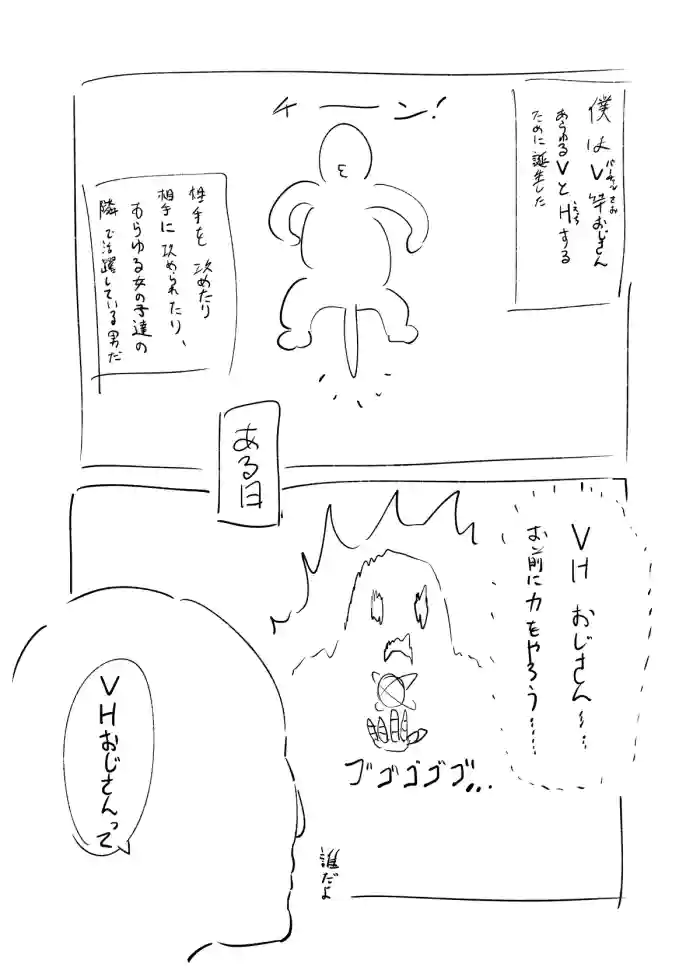 僕はV竿おじさん
バーチャルさお
あらゆるVとHする
えっち
ために誕生した
チーーン!
性手を攻めたり
相手に攻められたり、
あらゆる女の子達の
隣で活躍している男だ
ある日
VHおじさん……
お前に力をやろう……
ゴゴゴゴゴ...
VHおじさんって
誰だよ